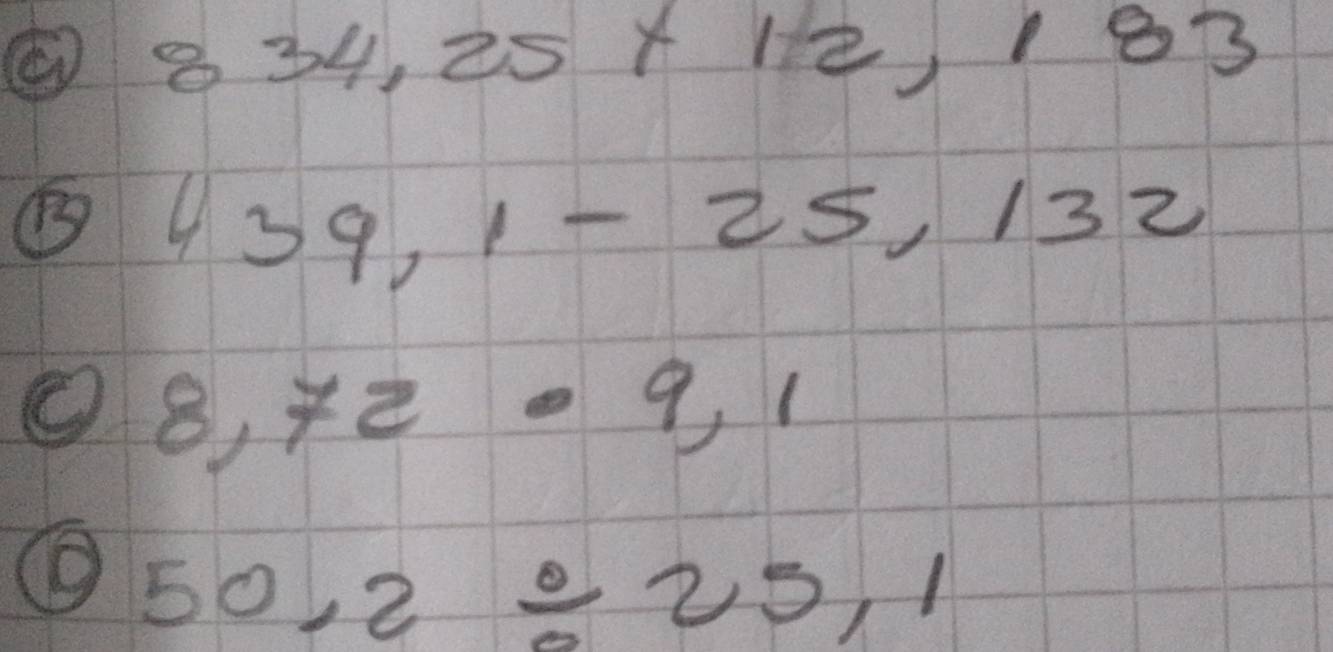 ⓐ 834,25 + 12,183
Ⓑ 439,1 - 25,132
Ⓒ 8,72 · 9,1
Ⓓ 50,2 ÷ 25,1